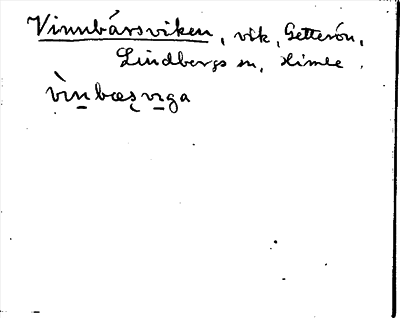 Vinnbärsviken, vik, Getterön,
Lindbergs sn, Himle.
vìn bœs viga